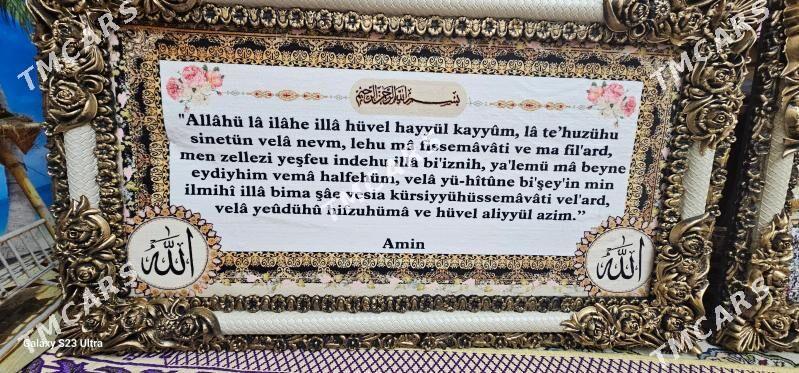 بسم الله الرحمن الرحيم
"Allâhü lâ ilâhe illâ hüvel hayyül kayyûm, lâ te'huzühu
sinetün velâ nevm, lehu mâ fissemâvâti ve ma fil'ard,
men zellezi yeşfeu indehu illâ bi'iznih, ya'lemü mâ beyne
eydiyhim vemâ halfehüm, velâ yü-hîtûne bi'şey'in min
ilmihî illâ bima şâe vesia kürsiyyühüssemâvâti vel'ard,
velâ yeûdühû hifzuhümâ ve hüvel aliyyül azim.”
Amin
الله
الله
Galaxy S23 Ultra
TMCARS
TMCARS
TMCARS
TMCARS
TMCARS
TMCARS
TMCARS
TMCARS
TMCARS